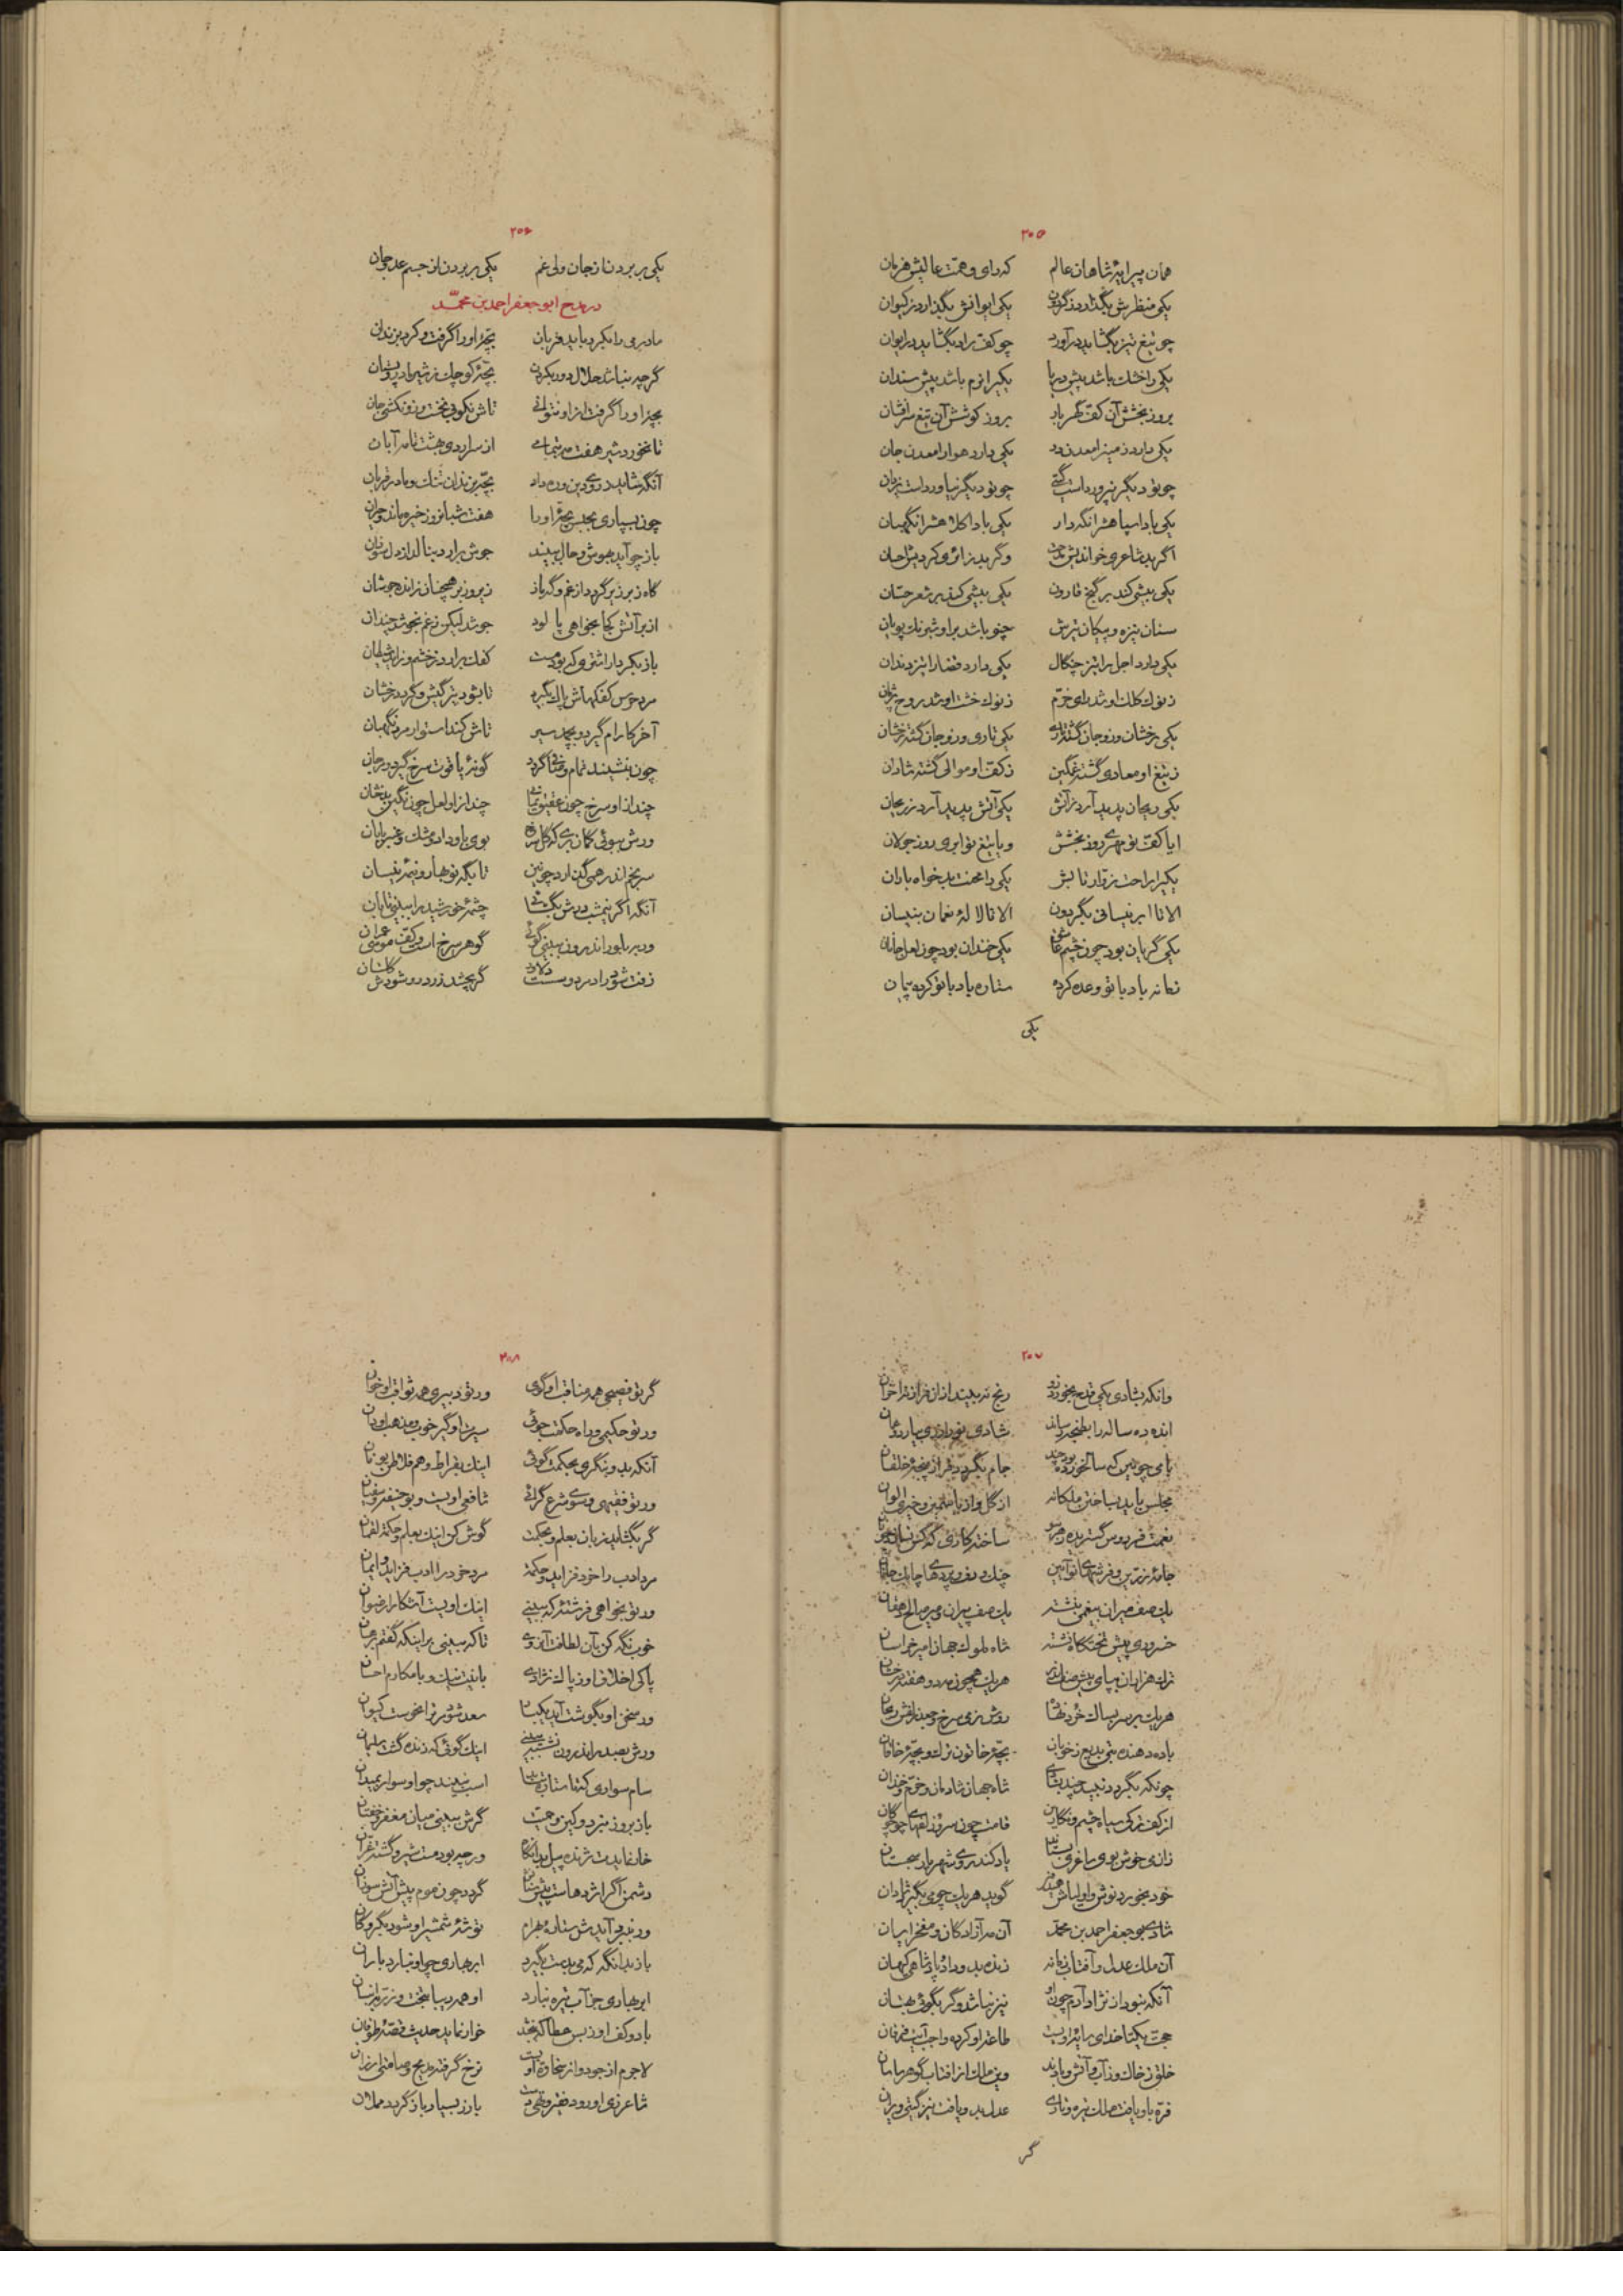 ۲۰۵
همان پیرایهٔ شاهان عالم که رای و همت عالیش هزمان
یکی منظرش بگذارد ز گردون یکی ایوانش بگذارد ز کیوان
چو تیغ تیز بگشاید درآورد چو کف راد بگشاید در ایوان
یکی را خشک باشد پیش دریا یکی را نرم باشد پیش سندان
بروز بخشش آن کف گهربار بروز کوشش آن تیغ سرافشان
یکی دارد زمین را معدن رود یکی دارد هوا را معدن جان
چو تو دیگر نپرورداست گیتی چو تو دیگر نیاورداست یزدان
یکی باد اسپاهش را نگه‌دار یکی باد اکلاهش را نگهبان
اگر بد شاعری خواندیش مدحت وگر بد زائری کردیش احسان
یکی بیشی کند بر گنج قارون یکی بیشی کند بر شعر حسّان
سنان نیزه و پیکان تیرش چنو باشد براو شبرنگ پویان
یکی دارد اجل را تیز چنگال یکی دارد قضا را تیز دندان
ز نوک کلک او شد رای خرّم ز نوک خشت او شد روح پژمان
یکی رخشان و زو جان گشته تاری یکی تاری و زو جان گشته رخشان
ز تیغ او معادی گشته غمگین ز کف او موالی گشته شادان
یکی ریحان پدید آرد ز آتش یکی آتش پدید آرد ز ریحان
ایا کف تو مهری روز بخشش و یا تیغ تو ابری روز جولان
یکی را راحت زوّار تابش یکی را محنت بدخواه باران
الا تا ابر نیسانی بگردون الا تا لالهٔ نعمان بنیسان
یکی گریان بود چون چشم عاشق یکی خندان بود چون لعل جانان
زمانه باد با تو وعده کرده ستاره باد با تو کرده پیمان
یکی
۲۰۶
یکی بر بردن از جان ولی غم یکی بر بردن از جسم عدو جان
در مدح ابوجعفر احمد بن محمّد
مادر می را بکرد باید قربان بچهٔ او را گرفت و کرد بزندان
گرچه نباشد حلال دور بکردن بچهٔ کوچک ز شیر مادر و پستان
بچهٔ او را گرفت از او نتوانی تاش نکوبی نخست و زو نکشی جان
تا نخورد شیر هفت مه بتمامی از سر اردی بهشت تا مر آبان
آنگه شاید ز روی دین و ره داد بچه بزندان تنگ و مادر قربان
چون بسپاری بحبس بچهٔ او را هفت شبانروز خیره ماند و حیران
باز چو آید بهوش و حال ببیند جوش برارد بنالد از دل سوزان
گاه زبر زیر گردد از غم و گه باز زیر و زبر همچنان ز انده جوشان
زر بر آتش کجا بخواهی پالود جوشد لیکن ز غم نجوشد چندان
باز بکردار اشتری که بود مست کفک برارد ز خشم و زاید شیطان
مرد حرس کفکهاش پاک بگیرد تا بشود تیرگیش و گردد رخشان
آخر کارام گیرد و نچخد نیز تاش کند استوار مرد نگهبان
چون بنشیند تمام و صافی گردد گونهٔ یاقوت سرخ گیرد و مرجان
چند از او سرخ چون عقیق یمانی چند از او لعل چون نگین بدخشان
ورش ببوئی گمان بری که گل سرخ بوی باو داد و مشک و عنبر با بان
سر بخم اندر همی گدارد چونین تا بگه نوبهار و نیمهٔ نیسان
آنگه اگر نیمشب درش بگشائی چشمهٔ خورشید را ببینی تابان
ور ببلور اندرون ببینی گوئی گوهر سرخ است و کف موسی عمران
زفت شود رادمرد و سست دلاور گر بچشد زرد رو شودش گلستان
۲۰۷
وانکه بشادی یکی قدح بخورد زو رنج نه بیند از آن فراز نه احزان
انده ده ساله را بطنجه رساند شادی نو را ز ری بیارد و عمان
با می چونین که سالخورده بود چند جامه بکرده فراز پنجه خلقان
مجلس باید بساخته ملکانه از گل و از یاسمین و خیری الوان
نعمت فردوس گستریده ز هر سو ساخته کاری که کس نسازد چونان
جامهٔ زرین و فرشهای نوآئین چنگ و دف و بربط‌ها چابک جانان
یک صف میران بلعمی بنشسته یک صف پیران میر صالح دهقان
خسرو بر پیش تختگاه نشسته شاه ملوک جهان امیر خراسان
ترک هزاران بپای پیش صف اندر هریک همچون مه دو هفته درخشان
هریک بر سر بساک مورد نهاده رویش زمی سرخ و جعد زلفش ریحان
باده دهنده بتی بدیع ز خوبان بچهٔ خاتون ترک و بچهٔ خاقان
چونکه بگردد نبید چند بشادی شاه جهان شادمان و خرّم و خندان
از کف ترکی سیاه چشم و نگارین قامت چون سرو و زلفهای چو چوگان
زان می خوش بوی ساغری بستاند یاد کند روی شهریار سجستان
خود بخورد نوش و اولیاش همیدون گوید هریک چو می بگیرد شادان
شادی بوجعفر احمد بن محمّد آن مه آزادگان و مفخر ایران
آن ملک عدل و آفتاب زمانه زنده بدو داد پادشاهی گیهان
آنکه نبود از نژاد آدم چون او نیز نباشد وگر بگوئی بهتان
حجت یکتا خدای و سایهٔ او است طاعت او کرده واجب آیت فرقان
خلق ز خاک و ز آب و آتش و بادند وین ملک از آفتاب گوهر ساسان
فرّه باو یافت ملک تیره و تاری عدل بدو یافت نیز گیتی ویران
گر
۲۰۸
گر تو فصیحی همه مناقب او گوی ور تو دبیری همه ثواقب او خوان
ور تو حکیمی و راه حکمت جوئی سیرت او گیر خوب و مذهب او دان
آنکه بدو بنگری بحکمت گوئی اینک بقراط و هم فلاطن یونان
ور تو فقیهی و سوی شرع گرائی شافعی او است و بوحنیفه و سفیان
گر بگشاید زبان بعلم و بحکمت گوش کن اینک بعلم و حکمة لقمان
مرد ادب را خرد فزاید و حکمة مرد خرد را ادب فزاید و ایمان
ور تو بخواهی فرشتهٔ که ببینی اینک او است آشکارا رضوان
خوب نگه کن بآن لطافت آن روی تاکه ببینی براینکه گفتم برهان
پاکی اخلاق او و پاک نژادی با نیت نیک و با مکارم احسان
ور سخن او بگوشت آید یکبار سعد شود مر ترا نحوست کیوان
ورش بصدر اندرون نشسته ببینی اینک گوئی که زنده گشت سلیمان
سام سواری که تا ستاره بتابد اسب نبیند چو او سوار بمیدان
باز بروز نبرد و کین و حمیت گرش ببینی میان مغفر و خفتان
خار نمایدت ژنده پیل بدانگاه ورچه بود مست و تیز و گشته غرّان
دشمن اگر اژدهاست پیش سنانش گردد چون موم پیش آتش سوزان
ور بنبرد آیدش ستارهٔ بهرام توشهٔ شمشیر او شود بگروگان
باز بدانگه که می بدست بگیرد ابر بهاری چو او نبارد باران
ابر بهاری جز آب تیره نبارد او همه دیبا بتخت و زر بهمیان
با دو کف او ز بس عطا که ببخشد خوار نماید حدیث قصّهٔ طوفان
لاجرم از جود و از سخاوت اوست نرخ گرفته مدیح و صامتی ارزان
شاعر زی او رود فقیر و تهی‌دست با زر بسیار باز گردد و حملان